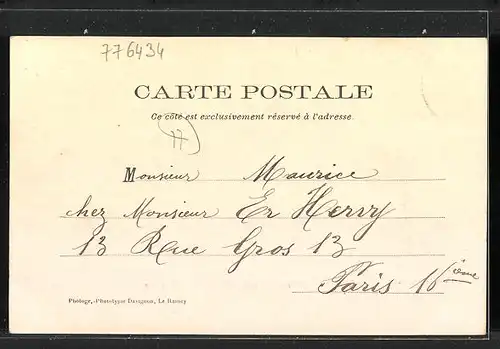 776434
CARTE POSTALE
Ce côté est exclusivement réservé à l'adresse.
77
Monsieur Maurice
chez Monsieur Er Hervy
13 Rue Gros 13
Paris 16ième
Photogr.-Phototypie Davignon, Le Raincy